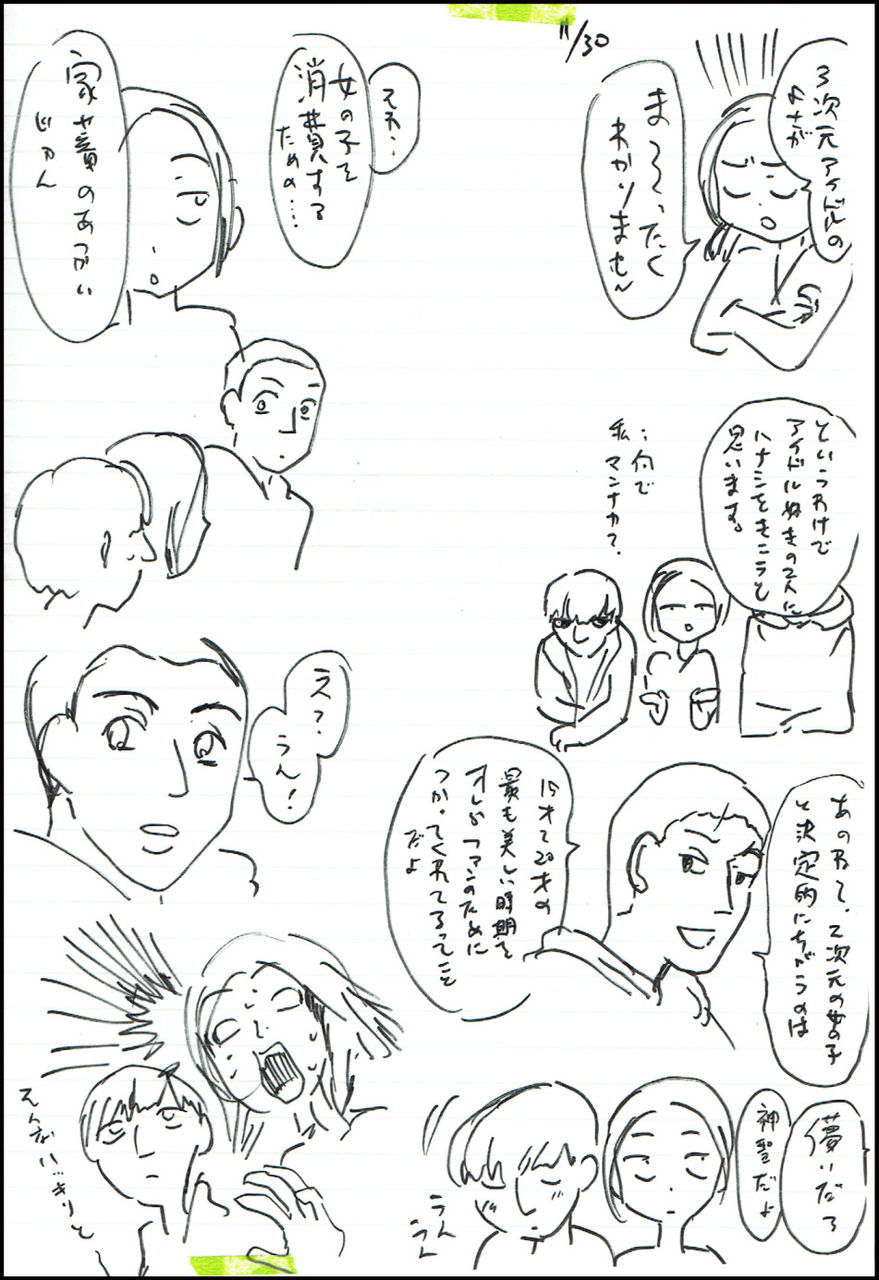 11/30
3次元アイドルの
よさが
ま〜ったく
わかりませ〜ん
というわけで
アイドル好きの2人に
ハナシをきこうと
思います。
…何で
私マンナカ?
あのねて、2次元の女の子
と決定的にちがうのは
15才〜20才の
最も美しい時期を
オレらファンのために
つかってくれてるってこと
だよ
儚いだろ
神聖だよ
うんうん
それ…
女の子を
消費する
ための…
家畜のあつかい
じゃん
え?
うん!
えんない…きりと